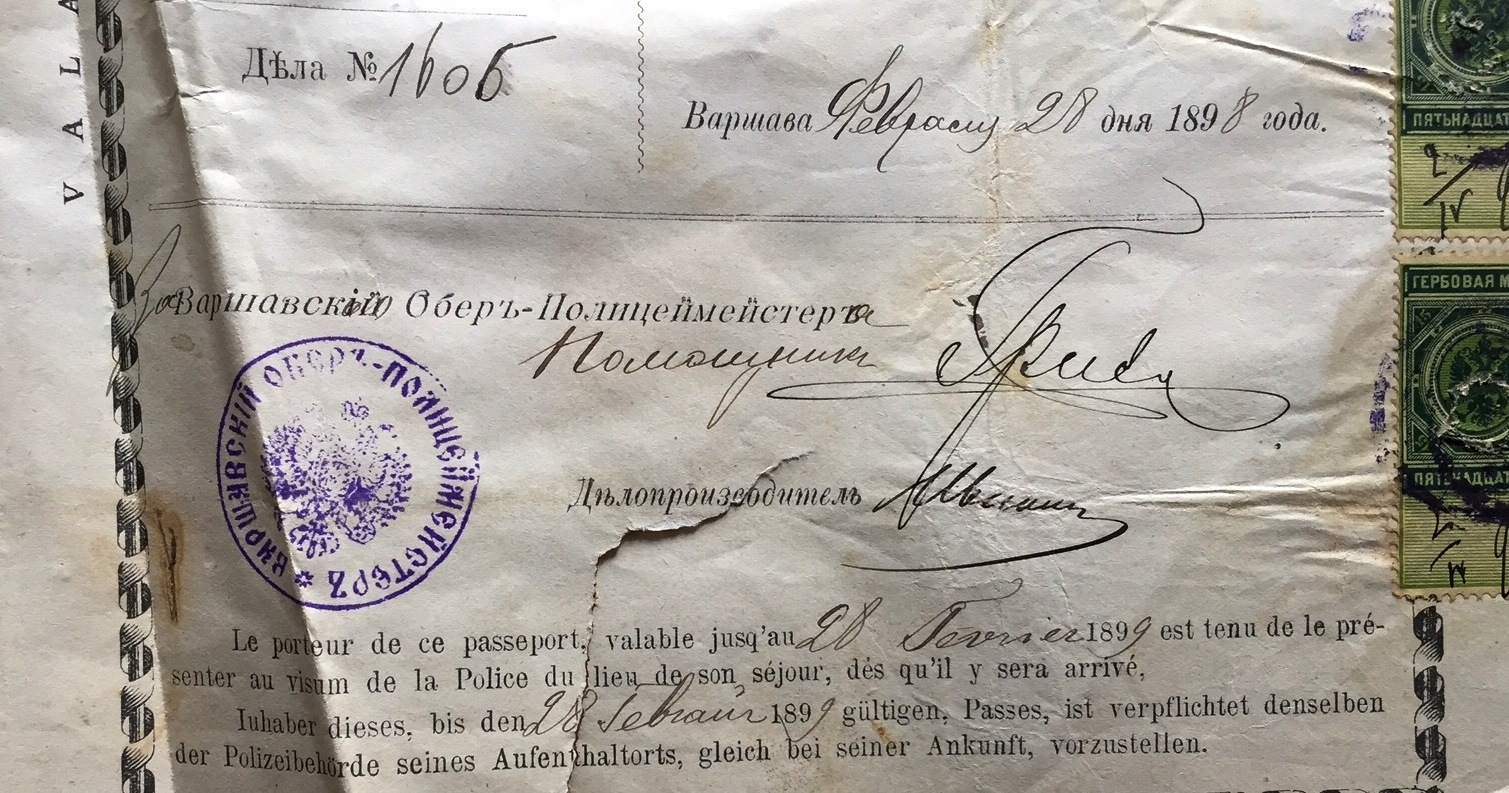 VALA
Дѣла № 1606
Варшава Февраля 28 дня 1898 года.
ПЯТЬНАДЦАТ
За Варшавскаго Оберъ-Полицеймейстера
Помощникъ
ГЕРБОВАЯ М
ВАРШАВСКІЙ ОБЕРЪ-ПОЛИЦЕЙМЕЙСТЕРЪ *
ПЯТЬНАДЦАТ
Дѣлопроизводитель
Le porteur de ce passeport, valable jusq'au 28 Fevrier 1899 est tenu de le pré-
senter au visum de la Police du lieu de son séjour, dés qu'il y sera arrivé,
Iuhaber dieses, bis den 28 Februar 1899 gültigen, Passes, ist verpflichtet denselben
der Polizeibehörde seines Aufenthaltorts, gleich bei seiner Ankunft, vorzustellen.